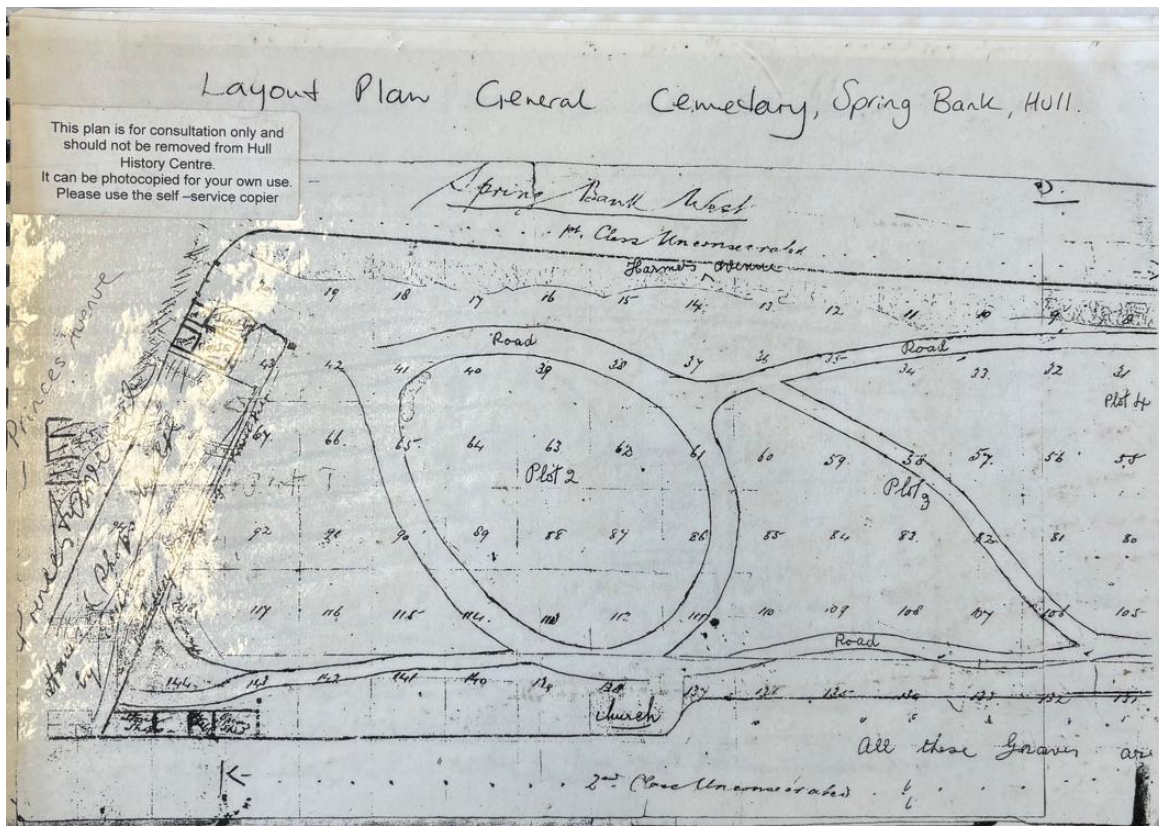 Layout Plan General Cemedary, Spring Bank, Hull.
This plan is for consultation only and
should not be removed from Hull
History Centre.
It can be photocopied for your own use.
Please use the self –service copier
Spring Bank West
1st. Class Unconsecrated
Harmers Avenue
19 18 17 16 15 14 13 12 11 10 9 8
Road
Road
43 42 41 40 39 38 37 36 35 34 33 32 31
Plot 4
Princes Avenue
67 66 65 64 63 62 61 60 59 58 57 56 55
Plot 2
Plot 3
92 91 90 89 88 87 86 85 84 83 82 81 80
117 116 115 114 113 112 111 110 109 108 107 106 105
Road
144 143 142 141 140 139 138 137 136 135 134 133 132 131
church
All these Graves are
2nd Class Unconsecrated